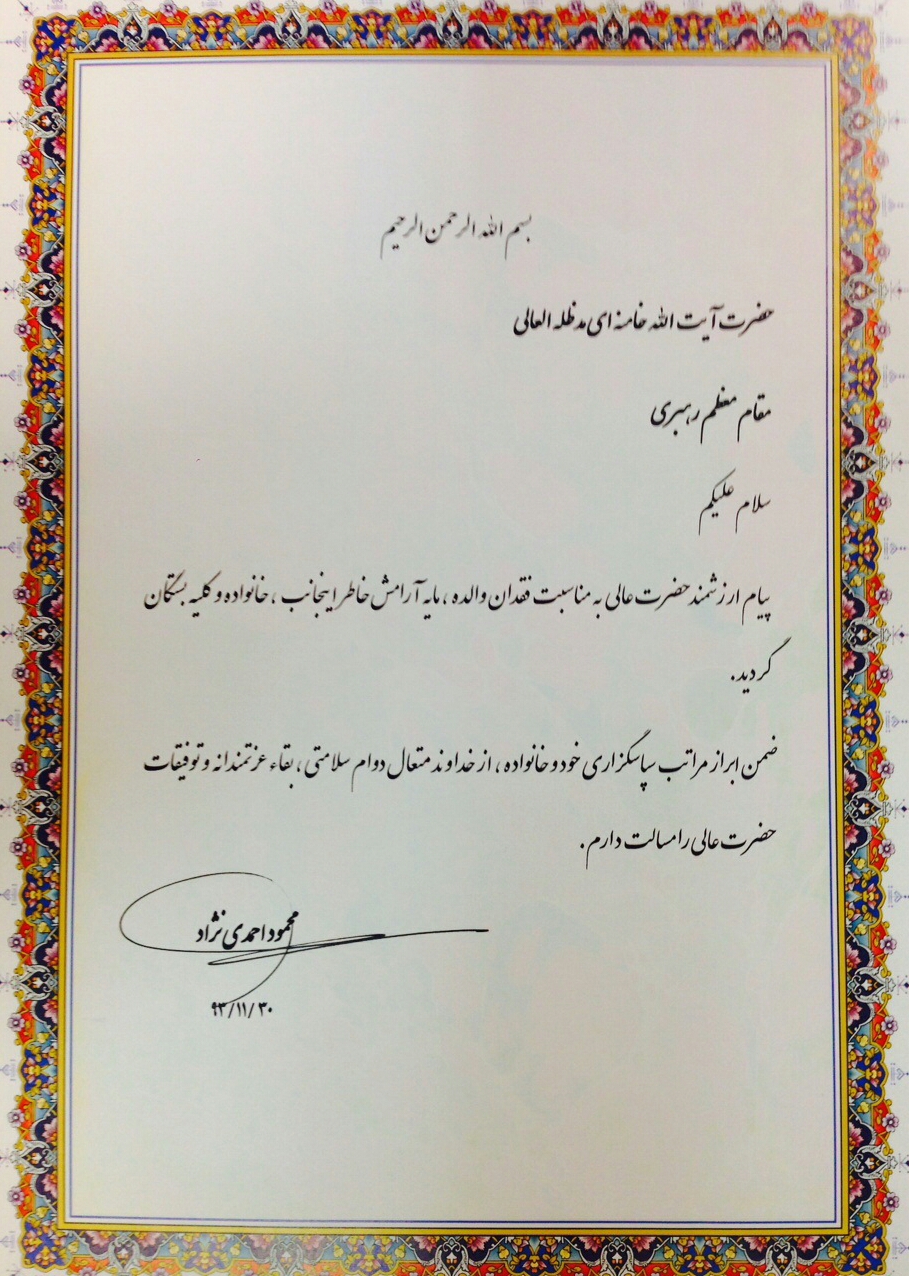 بسم الله الرحمن الرحیم
حضرت آیت الله خامنه ای مدظله العالی
مقام معظم رهبری
سلام علیکم
پیام ارزشمند حضرت عالی به مناسبت فقدان والده ، مایه آرامش خاطر اینجانب ، خانواده و کلیه بستگان
گردید.
ضمن ابراز مراتب سپاسگزاری خود و خانواده ، از خداوند متعال دوام سلامتی ، بقاء عزتمندانه و توفیقات
حضرت عالی را مسالت دارم .
محمود احمدی نژاد
۹۳/۱۱/۳۰